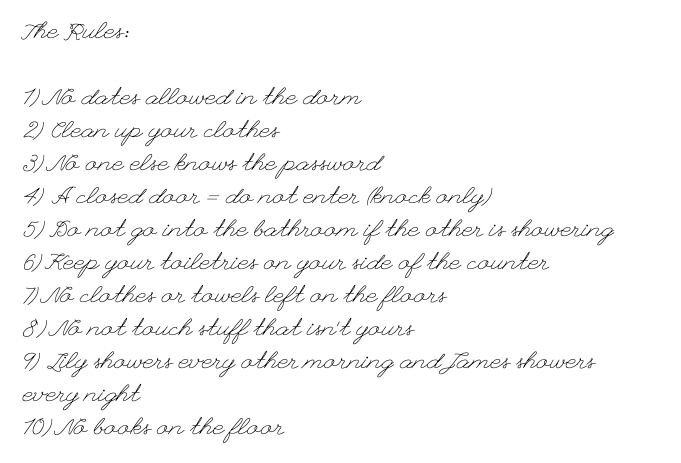 The Rules:
1) No dates allowed in the dorm
2) Clean up your clothes
3) No one else knows the password
4) A closed door = do not enter (knock only)
5) Do not go into the bathroom if the other is showering
6) Keep your toiletries on your side of the counter
7) No clothes or towels left on the floors
8) No not touch stuff that isn't yours
9) Lily showers every other morning and James showers
every night
10) No books on the floor